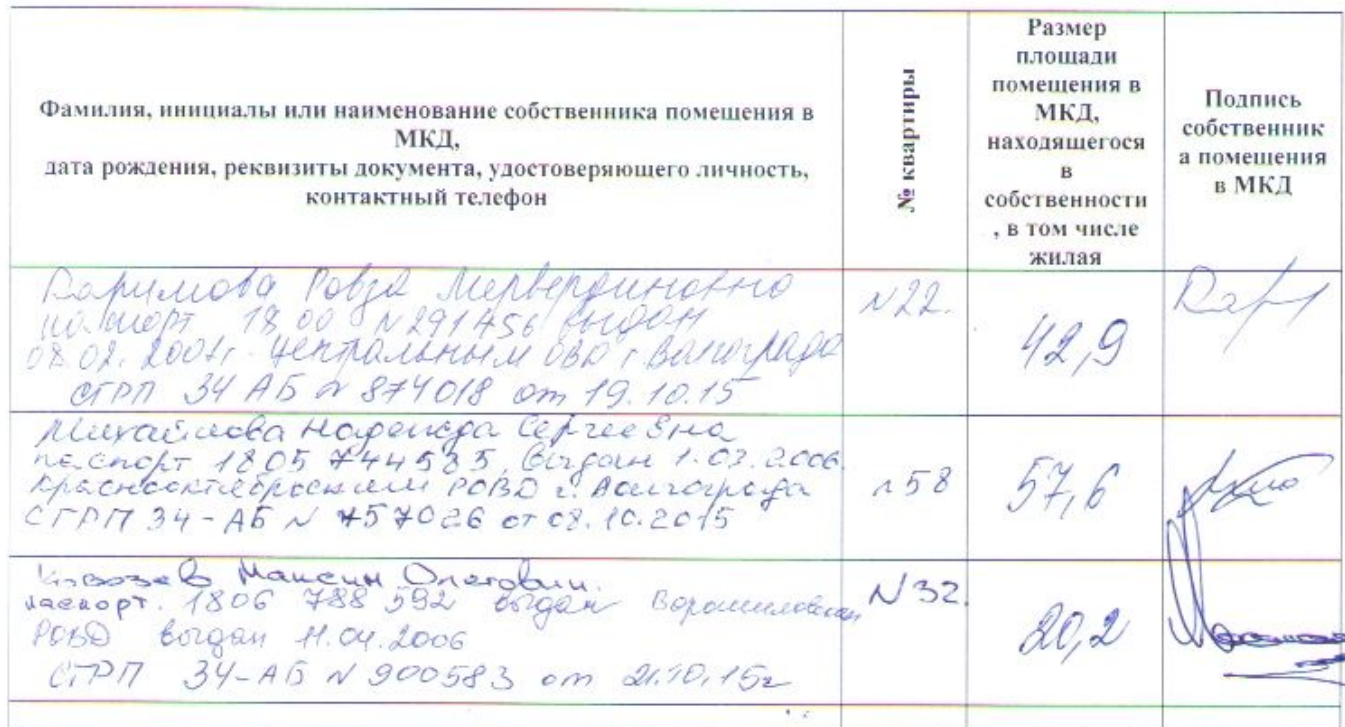 Фамилия, инициалы или наименование собственника помещения в
МКД,
дата рождения, реквизиты документа, удостоверяющего личность,
контактный телефон
№ квартиры
Размер
площади
помещения в
МКД,
находящегося
в
собственности
, в том числе
жилая
Подпись
собственник
а помещения
в МКД
Каримова Ровза
паспорт 18 00 N 291456 выдан
08.02. 2001г. Центральным ОВД г. Волгограда
СГРП 34 АБ N 874018 от 19.10.15
N22.
42,9
Кар
Михайлова Надежда Сергеевна
паспорт 1805 744585, выдан 1.03.2006.
Краснооктябрьским РОВД г. Волгограда
СГРП 34-АБ N 757026 от 08.10.2015
58
57,6
Максим Олегович.
паспорт. 1806 788 592 выдан Ворошиловским
РОВД выдан 11.04.2006
СГРП 34-АБ N 900583 от 21.10.15г
N 32.
20,2